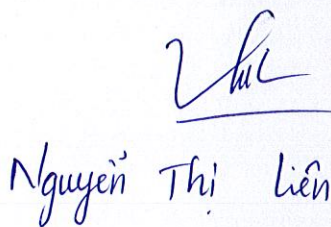 Nguyễn Thị Liên